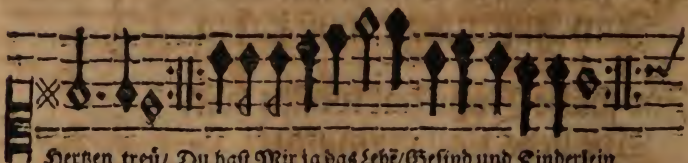 Hertzen treü/ Du hast Mir ja das Lebẽ/Gesind und Kinderlein